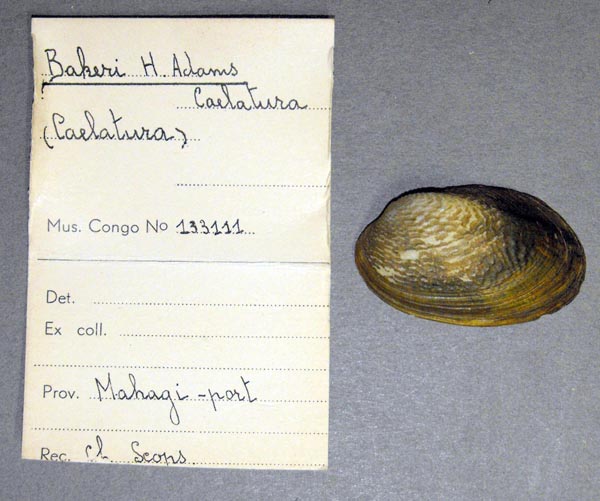 Bakeri H. Adams
Caelatura
(Caelatura)
Mus. Congo No 133111
Det.
Ex coll.
Prov. Mahagi-port
Rec. Ch. Scops